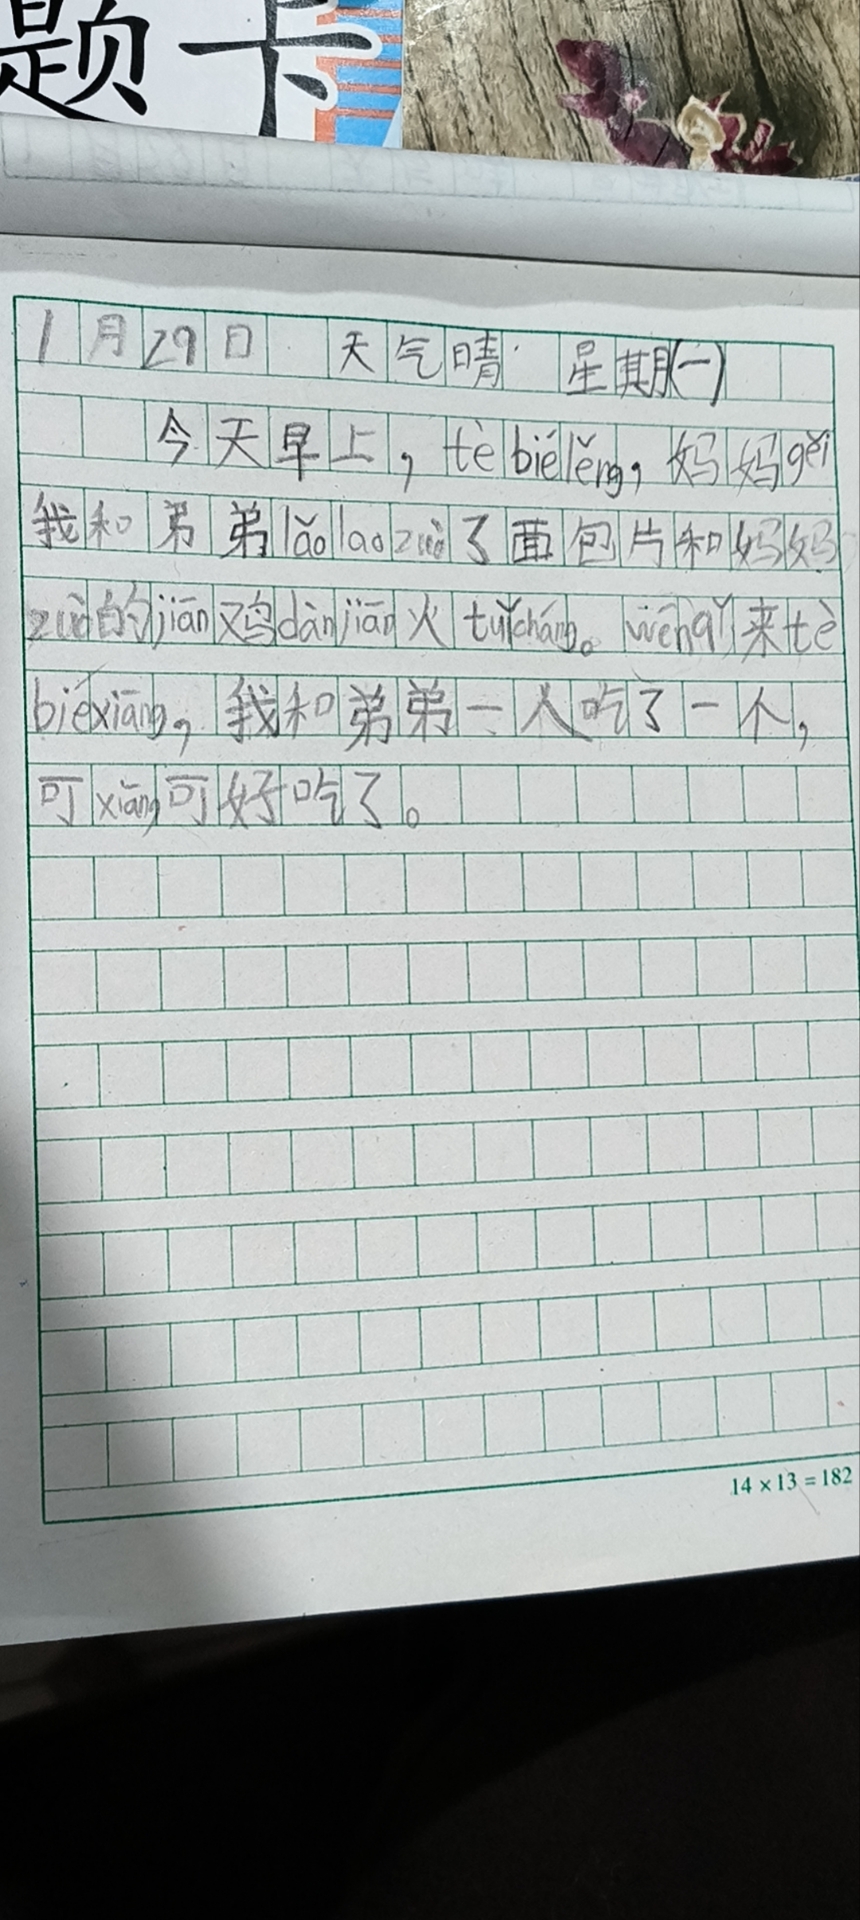 题卡
1月29日 天气晴 星期(一)
今天早上，tè bié lěng，妈妈gěi
我和弟弟lǎo lao zuò了面包片和妈妈
zuò的jiān鸡dànjiān火tuǐcháng。wénqǐ来tè
biéxiāng，我和弟弟一人吃了一个，
可xiāng可好吃了。
14×13=182